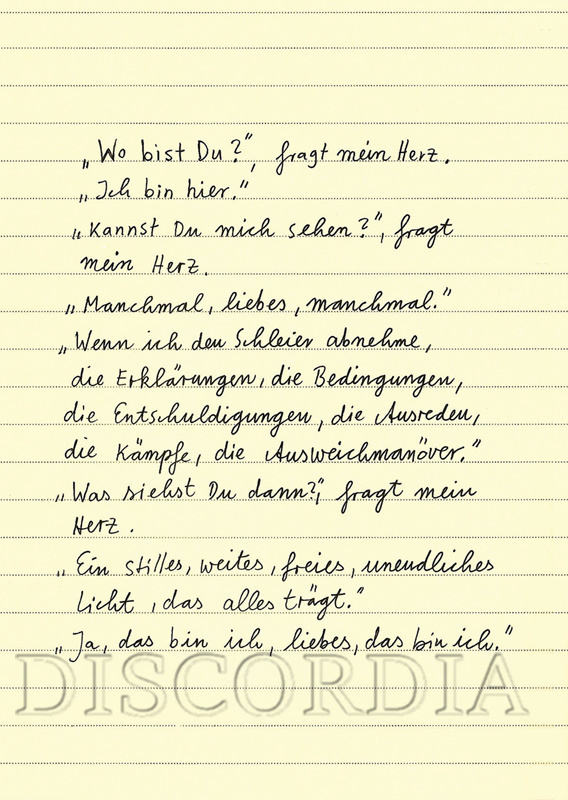 „Wo bist Du?", fragt mein Herz.
„Ich bin hier."
„Kannst Du mich sehen?", fragt
mein Herz.
„Manchmal, liebes, manchmal."
„Wenn ich den Schleier abnehme,
die Erklärungen, die Bedingungen,
die Entschuldigungen, die Ausreden,
die Kämpfe, die Ausweichmanöver."
„Was siehst Du dann?", fragt mein
Herz.
„Ein stilles, weites, freies, unendliches
Licht, das alles trägt."
„Ja, das bin ich, liebes, das bin ich."
DISCORDIA